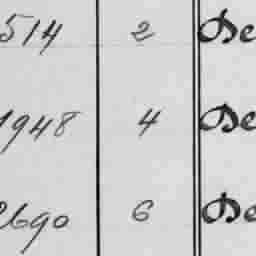 514 2 De
1948 4 De
2690 6 De